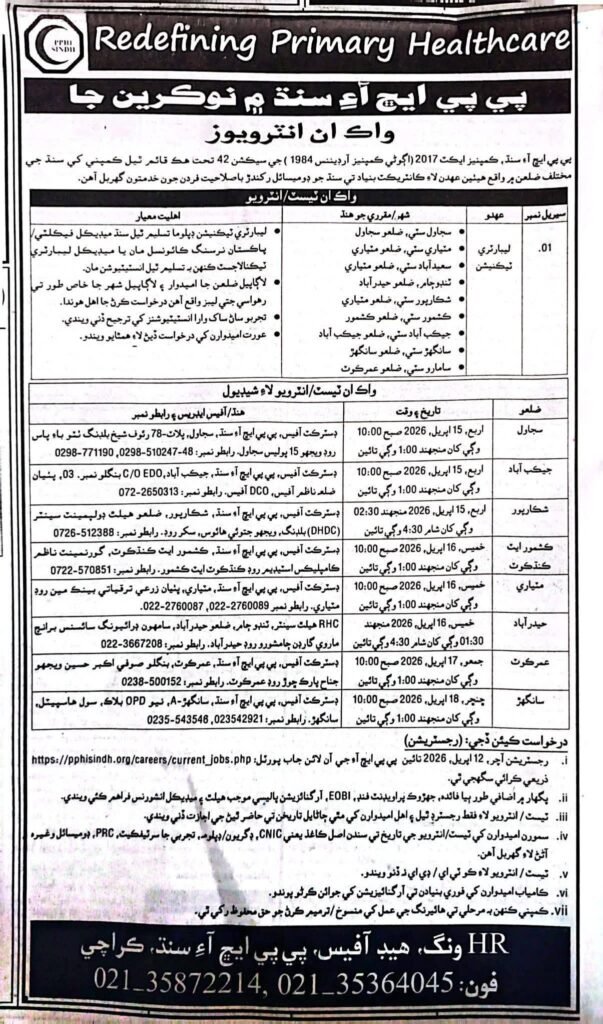 PPHI
SINDH
Redefining Primary Healthcare
پي پي ايڇ آءِ سنڌ ۾ نوڪرين جا
واڪ ان انٽرويوز
پي پي ايڇ آءِ سنڌ، ڪمپنيز ايڪٽ 2017 (اڳوڻي ڪمپنيز آرڊيننس 1984) جي سيڪشن 42 تحت هڪ قائم ٿيل ڪمپني کي سنڌ جي
مختلف ضلعن ۾ واقع هيٺين عهدن لاءِ ڪانٽريڪٽ بنياد تي سنڌ جو ڊوميسائل رکندڙ باصلاحيت فردن جون خدمتون گهربل آهن.
واڪ ان ٽيسٽ/انٽرويو
سيريل نمبر
عهدو
شهر/مقرري جو هنڌ
اهليت معيار
01.
ليبارٽري
ٽيڪنيشن
سجاول سٽي، ضلعو سجاول
مٽياري سٽي، ضلعو مٽياري
سعيدآباد سٽي، ضلعو مٽياري
ٽنڊوڄام، ضلعو حيدرآباد
شڪارپور سٽي، ضلعو شڪارپور
ڪشمور سٽي، ضلعو ڪشمور
جيڪب آباد سٽي، ضلعو جيڪب آباد
سانگهڙ سٽي، ضلعو سانگهڙ
سامارو سٽي، ضلعو عمرڪوٽ
ليبارٽري ٽيڪنيشن ڊپلوما تسليم ٿيل سنڌ ميڊيڪل فيڪلٽي/
پاڪستان نرسنگ ڪائونسل مان يا ميڊيڪل ليبارٽري
ٽيڪنالاجسٽ ڪنهن به تسليم ٿيل انسٽيٽيوشن مان.
لاڳاپيل ضلعن جا اميدوار ۽ لاڳاپيل شهر جا خاص طور تي
رهواسي جتي ليبز واقع آهن درخواست ڪرڻ جا اهل هوندا.
تجربو ساڻ ساک وارا انسٽيٽيوشنز کي ترجيح ڏني ويندي.
عورت اميدوارن کي درخواست ڏيڻ لاءِ همٿايو ويندو.
واڪ ان ٽيسٽ/انٽرويو لاءِ شيڊيول
ضلعو
تاريخ ۽ وقت
هنڌ/آفيس ايڊريس ۽ رابطو نمبر
سجاول
اربع، 15 اپريل، 2026 صبح 10:00
وڳي کان منجهند 1:00 وڳي تائين
ڊسٽرڪٽ آفيس، پي پي ايڇ آءِ سنڌ، سجاول، پلاٽ-78 رئوف شيخ بلڊنگ ٺٽو باءِ پاس
روڊ ويجهو 15 پوليس سجاول. رابطو نمبر: 48-510247-0298, 771190-0298
جيڪب آباد
اربع، 15 اپريل، 2026 صبح 10:00
وڳي کان منجهند 1:00 وڳي تائين
ڊسٽرڪٽ آفيس، پي پي ايڇ آءِ سنڌ، جيڪب آباد، C/O EDO بنگلو نمبر. 03، پٺيان
ضلعه ناظم آفيس، DCO آفيس. رابطو نمبر: 072-2650313
شڪارپور
اربع، 15 اپريل، 2026 منجهند 02:30
وڳي کان شام 4:30 وڳي تائين
ڊسٽرڪٽ آفيس، پي پي ايڇ آءِ سنڌ، شڪارپور، ضلعو هيلٿ ڊولپمينٽ سينٽر
(DHDC) بلڊنگ، ويجهو جتوئي هائوس، سکر روڊ. رابطو نمبر: 0726-512388
ڪشمور ايٽ
ڪنڌڪوٽ
خميس، 16 اپريل، 2026 صبح 10:00
وڳي کان منجهند 1:00 وڳي تائين
ڊسٽرڪٽ آفيس، پي پي ايڇ آءِ سنڌ، ڪشمور ايٽ ڪنڌڪوٽ، گورنمينٽ ناظم
ڪامپليڪس اسٽيڊيم روڊ ڪنڌڪوٽ ايٽ ڪشمور. رابطو نمبر: 0722-570851
مٽياري
خميس، 16 اپريل، 2026 صبح 10:00
وڳي کان منجهند 1:00 وڳي تائين
ڊسٽرڪٽ آفيس، پي پي ايڇ آءِ سنڌ، مٽياري، پٺيان زرعي ترقياتي بينڪ مين روڊ
مٽياري. رابطو نمبر: 022-2760089, 022-2760087
حيدرآباد
خميس، 16 اپريل، 2026 منجهند
01:30 وڳي کان شام 4:30 وڳي تائين
RHC هيلٿ سينٽر، ٽنڊو ڄام، ضلعو حيدرآباد، سامهون ڊرائيونگ لائسنس برانچ
ماروي گارڊن ڄامشورو روڊ حيدرآباد. رابطو نمبر: 022-3667208
عمرڪوٽ
جمعو، 17 اپريل، 2026 صبح 10:00
وڳي کان منجهند 1:00 وڳي تائين
ڊسٽرڪٽ آفيس، پي پي ايڇ آءِ سنڌ، عمرڪوٽ، بنگلو صوفي اڪبر حسين ويجهو
جناح پارڪ ڇوڙ روڊ عمرڪوٽ. رابطو نمبر: 0238-500152
سانگهڙ
ڇنڇر، 18 اپريل، 2026 صبح 10:00
وڳي کان منجهند 1:00 وڳي تائين
ڊسٽرڪٽ آفيس، پي پي ايڇ آءِ سنڌ، سانگهڙ-A، نيو OPD بلاڪ، سول هاسپيٽل،
سانگهڙ. رابطو نمبر: 023542921, 0235-543546
درخواست ڪيئن ڏجي: (رجسٽريشن)
i. رجسٽريشن آچر، 12 اپريل، 2026 تائين پي پي ايڇ آءِ جي آن لائن جاب پورٽل: https://pphisindh.org/careers/current_jobs.php
ذريعي ڪرائي سگهجي ٿي.
ii. پگهار ۾ اضافي طور ٻيا فائدہ، جهڙوڪ پراويڊنٽ فنڊ، EOBI، آرگنائزيشن پاليسي موجب هيلٿ ۽ ميڊيڪل انشورنس فراهم ڪئي ويندي.
iii. ٽيسٽ/ انٽرويو لاءِ فقط رجسٽرڊ ٿيل ۽ اهل اميدوارن کي مٿي ڄاڻايل تاريخن تي حاضر ٿيڻ جي اجازت ڏني ويندي.
iv. سمورن اميدوارن کي ٽيسٽ/انٽرويو جي تاريخ تي سندن اصل ڪاغذ يعني CNIC، ڊگريون/ڊپلوما، تجربي جا سرٽيفڪيٽ، PRC، ڊوميسائل وغيره
آڻڻ لاءِ گهربل آهن.
v. ٽيسٽ/ انٽرويو لاءِ ڪو ٽي اي/ ڊي اي نه ڏنو ويندو.
vi. ڪامياب اميدوارن کي فوري بنيادن تي آرگنائزيشن کي جوائن ڪرڻو پوندو.
vii. ڪمپني ڪنهن به مرحلي تي هائيرنگ جي عمل کي منسوخ/ ترميم ڪرڻ جو حق محفوظ رکي ٿي.
HR ونگ، هيڊ آفيس، پي پي ايڇ آءِ سنڌ، ڪراچي
فون: 021_35364045 ,021_35872214